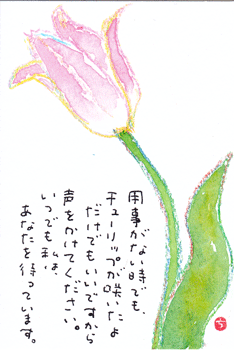 用事がない時でも、
チューリップが咲いたよ
だけでもいいですから
声をかけてください。
いつでも私は
あなたを待っています。